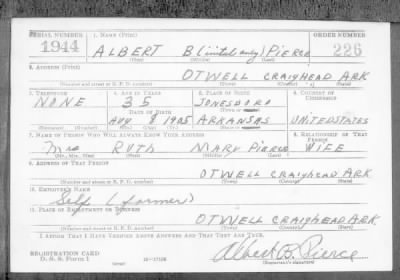 SERIAL NUMBER 1. NAME (Print) ORDER NUMBER
1944 ALBERT B (inital only) PIERCE 226
(First) (Middle) (Last)
2. ADDRESS (Print)
OTWELL CRAIGHEAD ARK
(Number and street or R. F. D. number) (Town) (County) (State)
3. TELEPHONE 4. AGE IN YEARS 5. PLACE OF BIRTH 6. COUNTRY OF CITIZENSHIP
NONE 35 JONESBORO
DATE OF BIRTH
AUG 8 1905 ARKANSAS UNITED STATES
(Exchange) (Number) (Mo.) (Day) (Yr.) (State or country)
7. NAME OF PERSON WHO WILL ALWAYS KNOW YOUR ADDRESS 8. RELATIONSHIP OF THAT PERSON
Mrs RUTH MARY PIERCE WIFE
(Mr., Mrs., Miss) (First) (Middle) (Last)
9. ADDRESS OF THAT PERSON
OTWELL CRAIGHEAD ARK
(Number and street or R. F. D. number) (Town) (County) (State)
10. EMPLOYER'S NAME
Self (farmer)
11. PLACE OF EMPLOYMENT OR BUSINESS
OTWELL CRAIGHEAD ARK
(Number and street or R. F. D. number) (Town) (County) (State)
I AFFIRM THAT I HAVE VERIFIED ABOVE ANSWERS AND THAT THEY ARE TRUE.
REGISTRATION CARD
D. S. S. Form 1
Albert B. Pierce
(Registrant's signature)